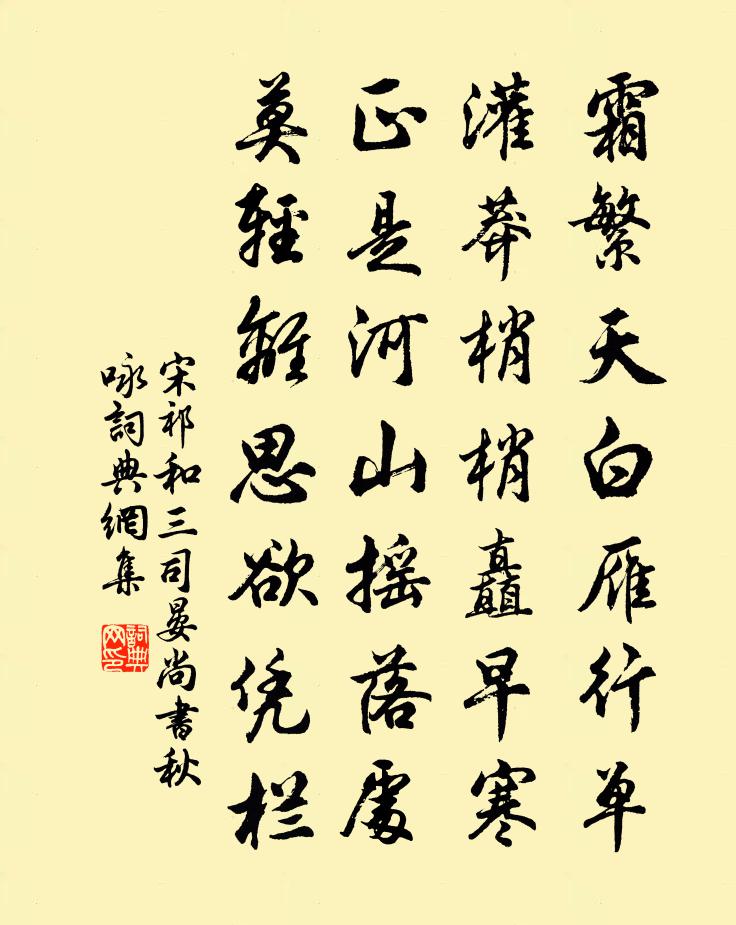 霜繁天白雁行单
灌莽梢梢矗早寒
正是河山摇落處
莫輕離思欲凭栏
宋祁和三司晏尚書秋
咏詞典網集
詞典网印